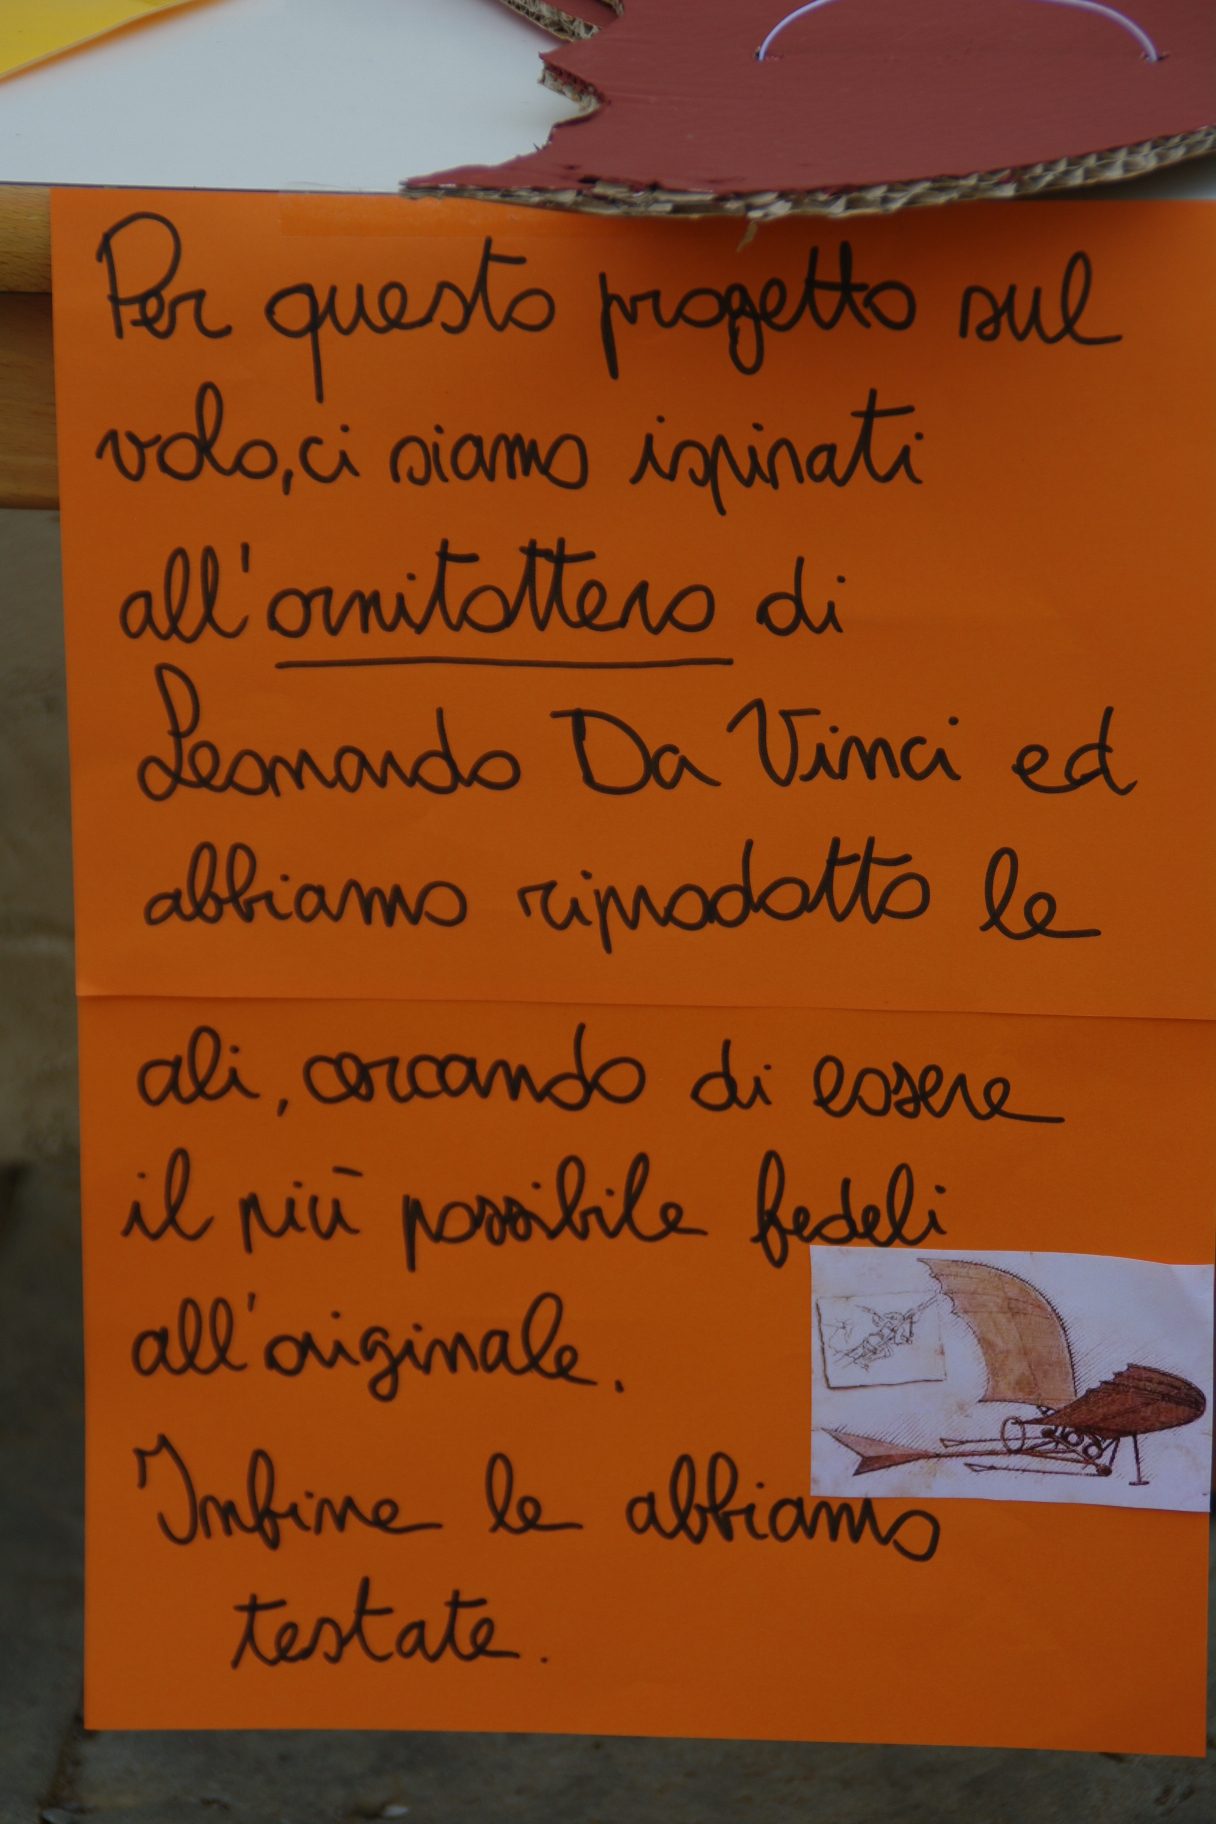 Per questo progetto sul
volo, ci siamo ispirati
all'ornitottero di
Leonardo Da Vinci ed
abbiamo riprodotto le
ali, cercando di essere
il più possibile fedeli
all'originale.
Infine le abbiamo
testate.